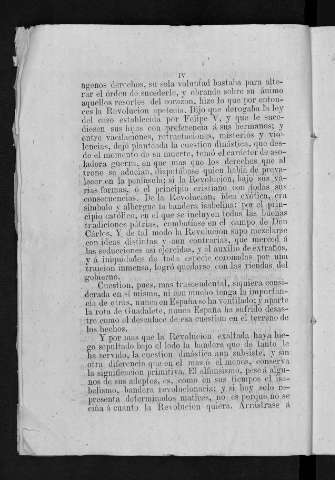 IV
ngenos derechos, su sola voluntad bastaba para alte-
rar el órden de sucederle, y obrando sobre su ánimo
aquellos resortes del corazon, hizo lo que por enton-
ces la Revolucion apetecia. Dijo que derogaba la ley
del caso establecida por Felipe V, y que le suce-
diesen sus hijas con preferencia á sus hermanos; y
entre vacilaciones, retractaciones, misterios y vio-
lencias, dejó planteada la cuestion dinástica, que des-
de el momento de su muerte, tomó el carácter de aso-
ladora guerra, en que mas que los derechos que al
trono se aducian, disputábase quien habia de preva-
lecer en la península; si la Revolucion, bajo sus va-
rias formas, ó el principio cristiano con todas sus
consecuencias. De la Revolucion, idea exótica, era
símbolo y albergue la bandera isabelina: por el prin-
cipio católico, en el que se incluyen todas las buenas
tradiciones pátrias, combatimos en el campo de Don
Cárlos. Y de tal modo la Revolucion supo mezclarse
con ideas distintas y aun contrarias, que merced á
las seducciones así ejercidas, y al auxilio de extraños,
y á iniquidades de toda especie coronadas por una
traicion inmensa, logró quedarse con las riendas del
gobierno.
Cuestion, pues, mas trascendental, siquiera consi-
derada en sí misma, ni con mucho tenga la importan-
cia de otras, nunca en España se ha ventilado; y aparte
la rota de Guadalete, nunca España ha sufrido desas-
tre como el desenlace de esa cuestion en el terreno de
los hechos.
Y por mas que la Revolucion exaltada haya lue-
go sepultado bajo el lodo la bandera que de tanto le
ha servido, la cuestion dinástica aun subsiste, y sin
otra diferencia que en el mas ó el menos, conserva
la significacion primitiva. El alfonsismo, pese á algu-
nos de sus adeptos, es, como en sus tiempos el isa-
belismo, bandera revolucionaria; y si hoy solo re-
presenta determinados matices, no es porque no se
ciña á cuanto la Revolucion quiera. Arrástrase á